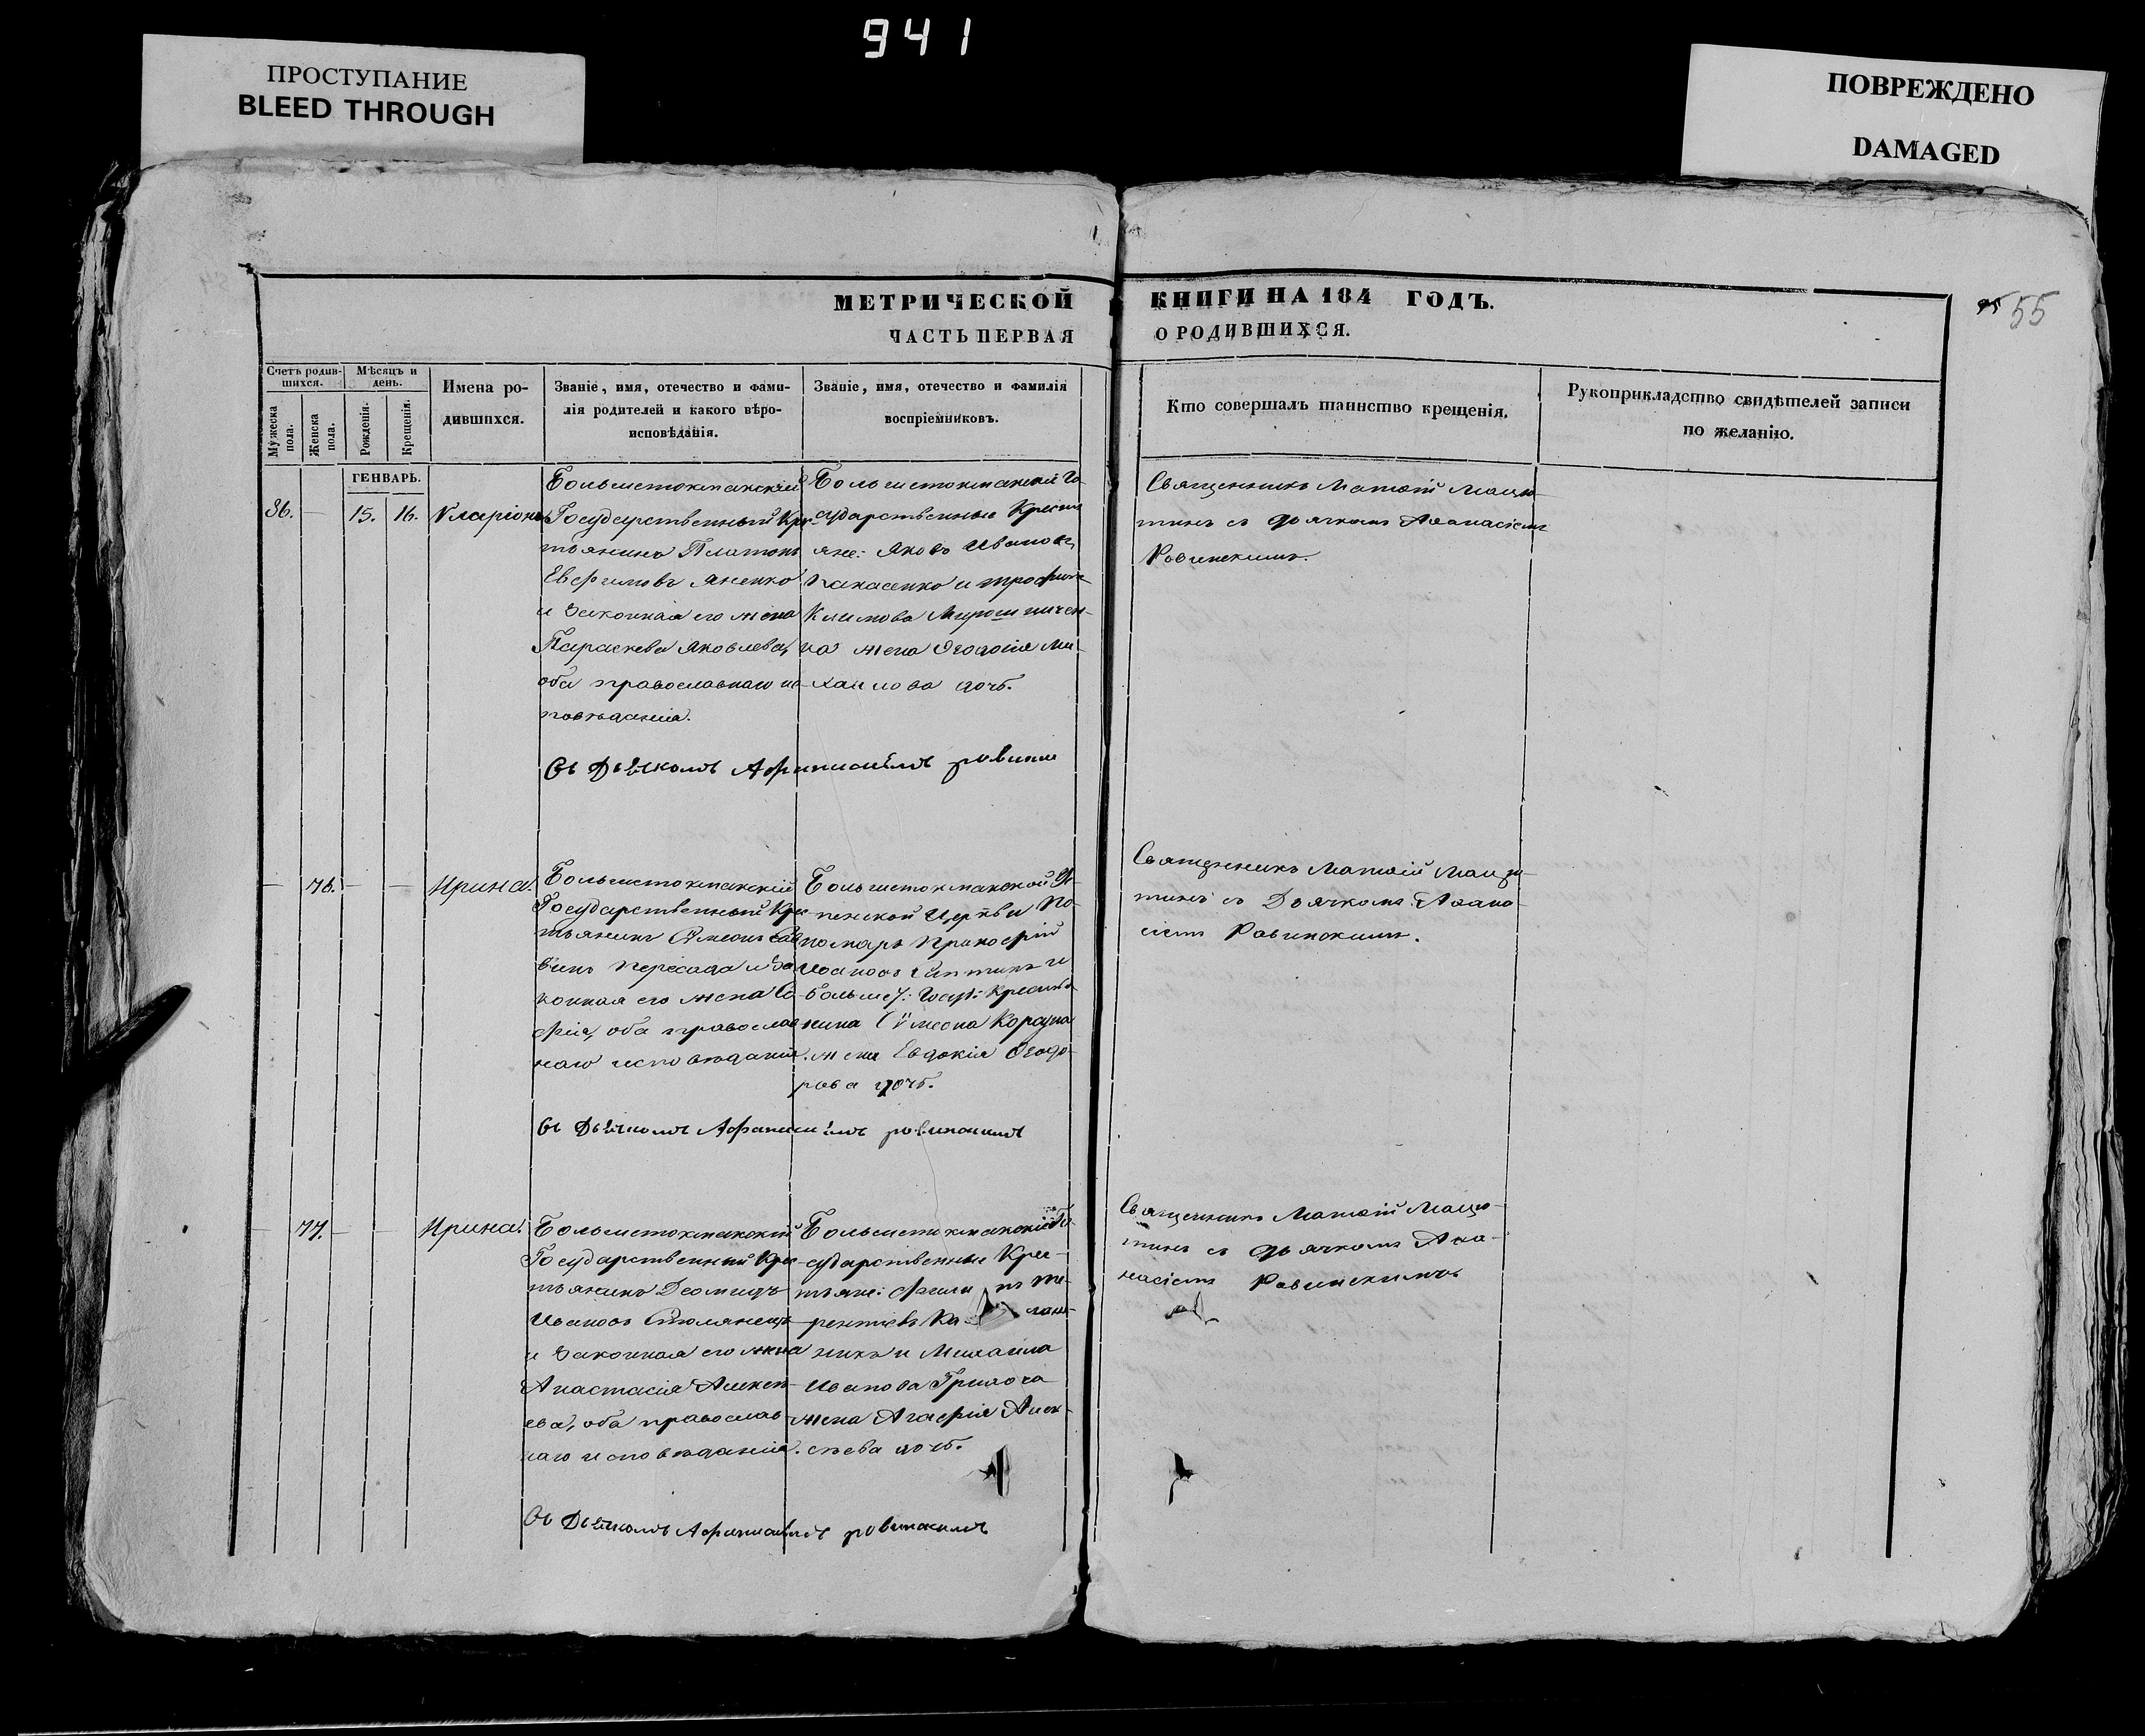 941
ПРОСТУПАНИЕ
BLEED THROUGH
ПОВРЕЖДЕНО
DAMAGED
55
МЕТРИЧЕСКОЙ КНИГИ НА 184 ГОДЪ.
ЧАСТЬ ПЕРВАЯ О РОДИВШИХСЯ.
Счетъ родив-
шихся.
Мужеска
пола.
Женска
пола.
Мѣсяцъ и
день.
Рожденія.
Крещенія.
Имена ро-
дившихся.
Званіе, имя, отечество и фами-
лія родителей и какого вѣро-
исповѣданія.
Званіе, имя, отечество и фамилія
воспріемниковъ.
Кто совершалъ таинство крещенія.
Рукоприкладство свидѣтелей записи
по желанію.
ГЕНВАРЬ.
36.
—
15.
16.
Иларіонъ
Большетокмакскій
Государственный Кре-
стьянинъ Платонъ
Евфимовъ Яненко
и законная его жена
Параскева Яковлева,
оба православнаго ис-
повѣданія.
Большетокмакскіе Го-
сударственные Кресть
яне: Яковъ Ивановъ
Панасенко и Трофима
Климова Мирошничен-
ка жена Ѳеодосія Ми-
хаилова дочь.
Священникъ Матѳій Мацю-
тинъ съ дьячкомъ Аѳанасіемъ
Ровинскимъ.
Съ Дьячкомъ
— 76. — —
Ирина.
Большетокмакскій
Государственный Кре-
стьянинъ Сѵмеонъ Сав
винъ Пересада и за
конная его жена Со-
фія, оба православ
наго исповѣданія.
Большетокмакской Ус-
пенской Церкви По-
номарь Прокофій
Ивановъ и
Больше Т: Госуд: Крестья-
нина Сѵмеона Корсуна
жена Евдокія Ѳеодо-
рова дочь.
Священникъ Матѳій Мацю-
тинъ съ Дьячкомъ Аѳана-
сіемъ Ровинскимъ.
Съ Дьячкомъ Афанасіемъ ровинскимъ
— 77. — —
Ирина.
Большетокмакскій
Государственный Кре-
стьянинъ Деомидъ
Ивановъ
и законная его жена
Анастасія Алексѣ-
ева, оба православ-
наго исповѣданія.
Большетокмакскіе Го-
сударственные Кре-
стьяне: Филипъ Те-
рентіевъ
никъ и Михаила
Иванова
жена Агафія Алек-
сѣева дочь.
Священникъ Матѳій Мацю-
тинъ съ дьячкомъ Аѳа-
насіемъ Ровинскимъ
Съ Дьячкомъ Афанасіемъ ровинскимъ